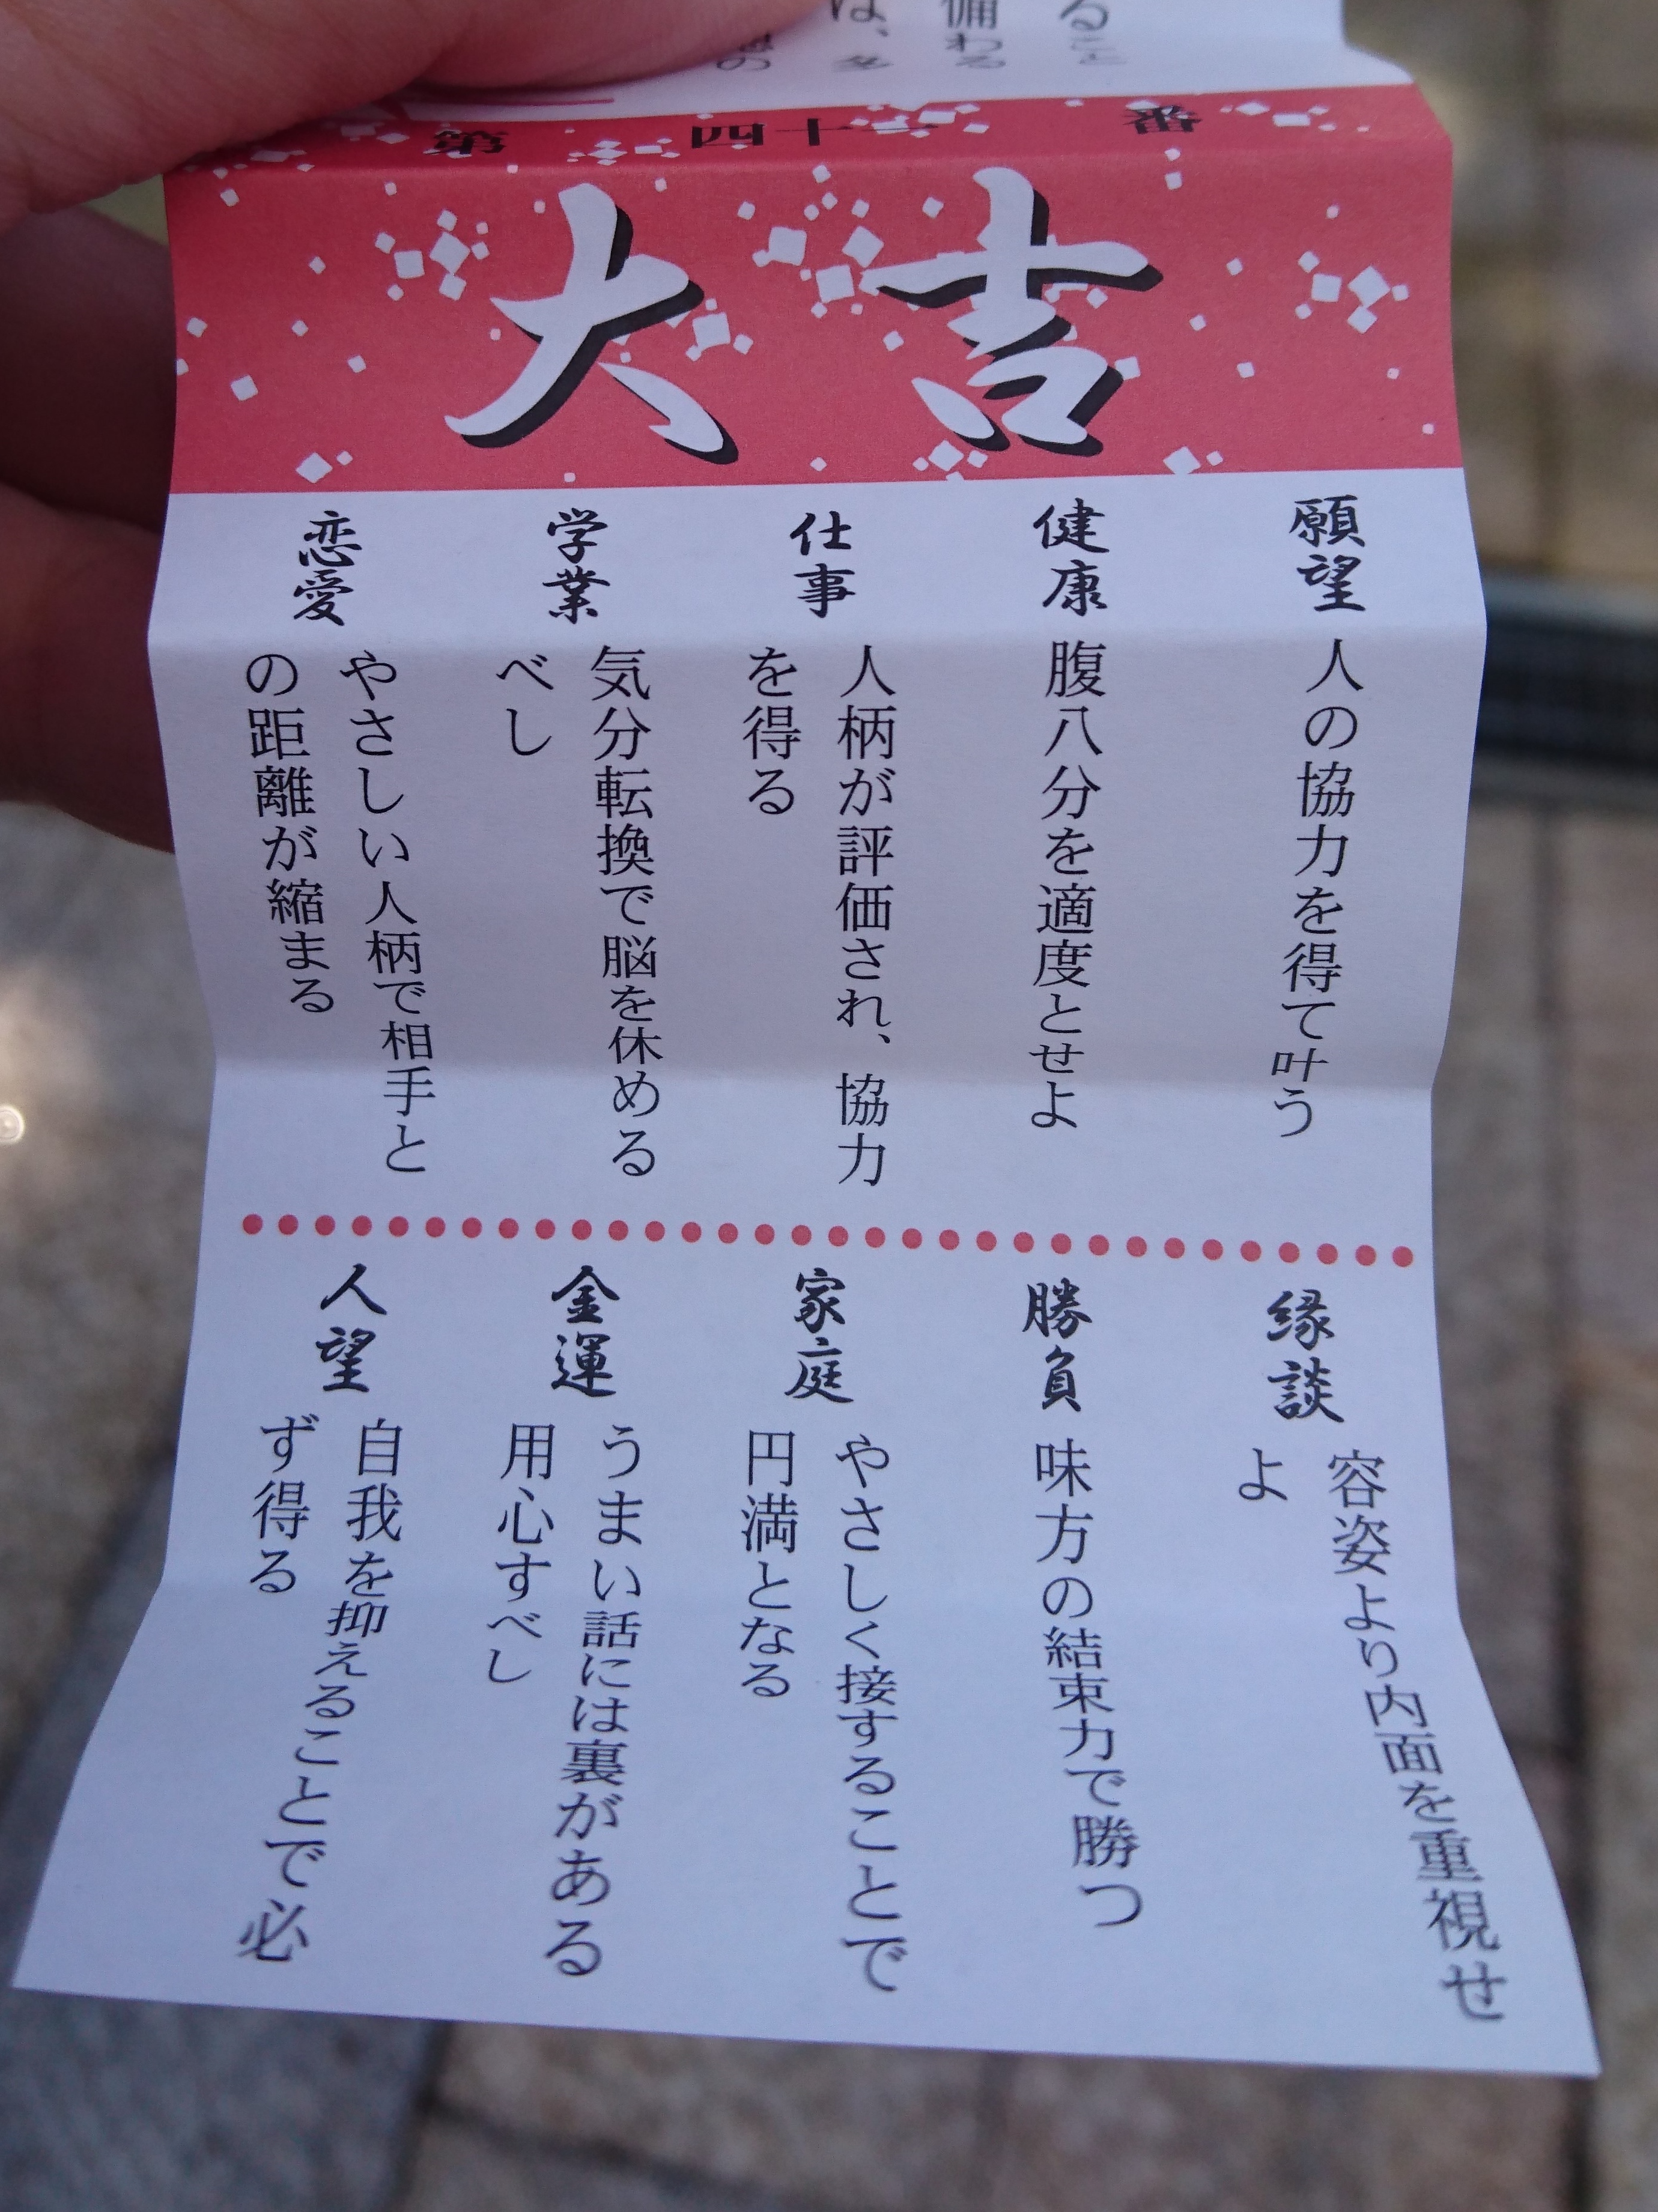 第四十一番
大吉
願望
人の協力を得て叶う
健康
腹八分を適度とせよ
仕事
人柄が評価され、協力
を得る
学業
気分転換で脳を休める
べし
恋愛
やさしい人柄で相手と
の距離が縮まる
縁談
容姿より内面を重視せ
よ
勝負
味方の結束力で勝つ
家庭
やさしく接することで
円満となる
金運
うまい話には裏がある
用心すべし
人望
自我を抑えることで必
ず得る